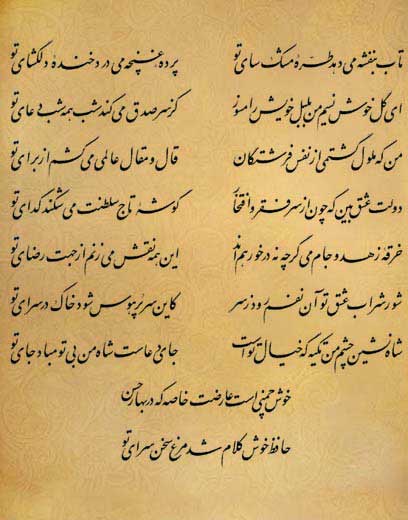 تاب بنفشه می دهد طرهٔ مشک سای تو پردهٔ غنچه می درد خندهٔ دلگشای تو
ای گل خوش نسیم من بلبل خویش را مسوز کز سر صدق می کند شب همه شب دعای تو
من که ملول گشتمی از نفس فرشتگان قال و مقال عالمی می کشم از برای تو
دولت عشق بین که چون از سر فقر و افتخار گوشهٔ تاج سلطنت می شکند گدای تو
خرقه زهد و جام می گرچه نه در خور هم اند این همه نقش می زنم از جهت رضای تو
شور شراب عشق تو آن نفسم رود ز سر کاین سر پر هوس شود خاک در سرای تو
شاه نشین چشم من تکیه گه خیال تو است جای دعاست شاه من بی تو مباد جای تو
خوش چمنی است عارضت خاصه که در بهار حسن
حافظ خوش کلام شد مرغ سخن سرای تو